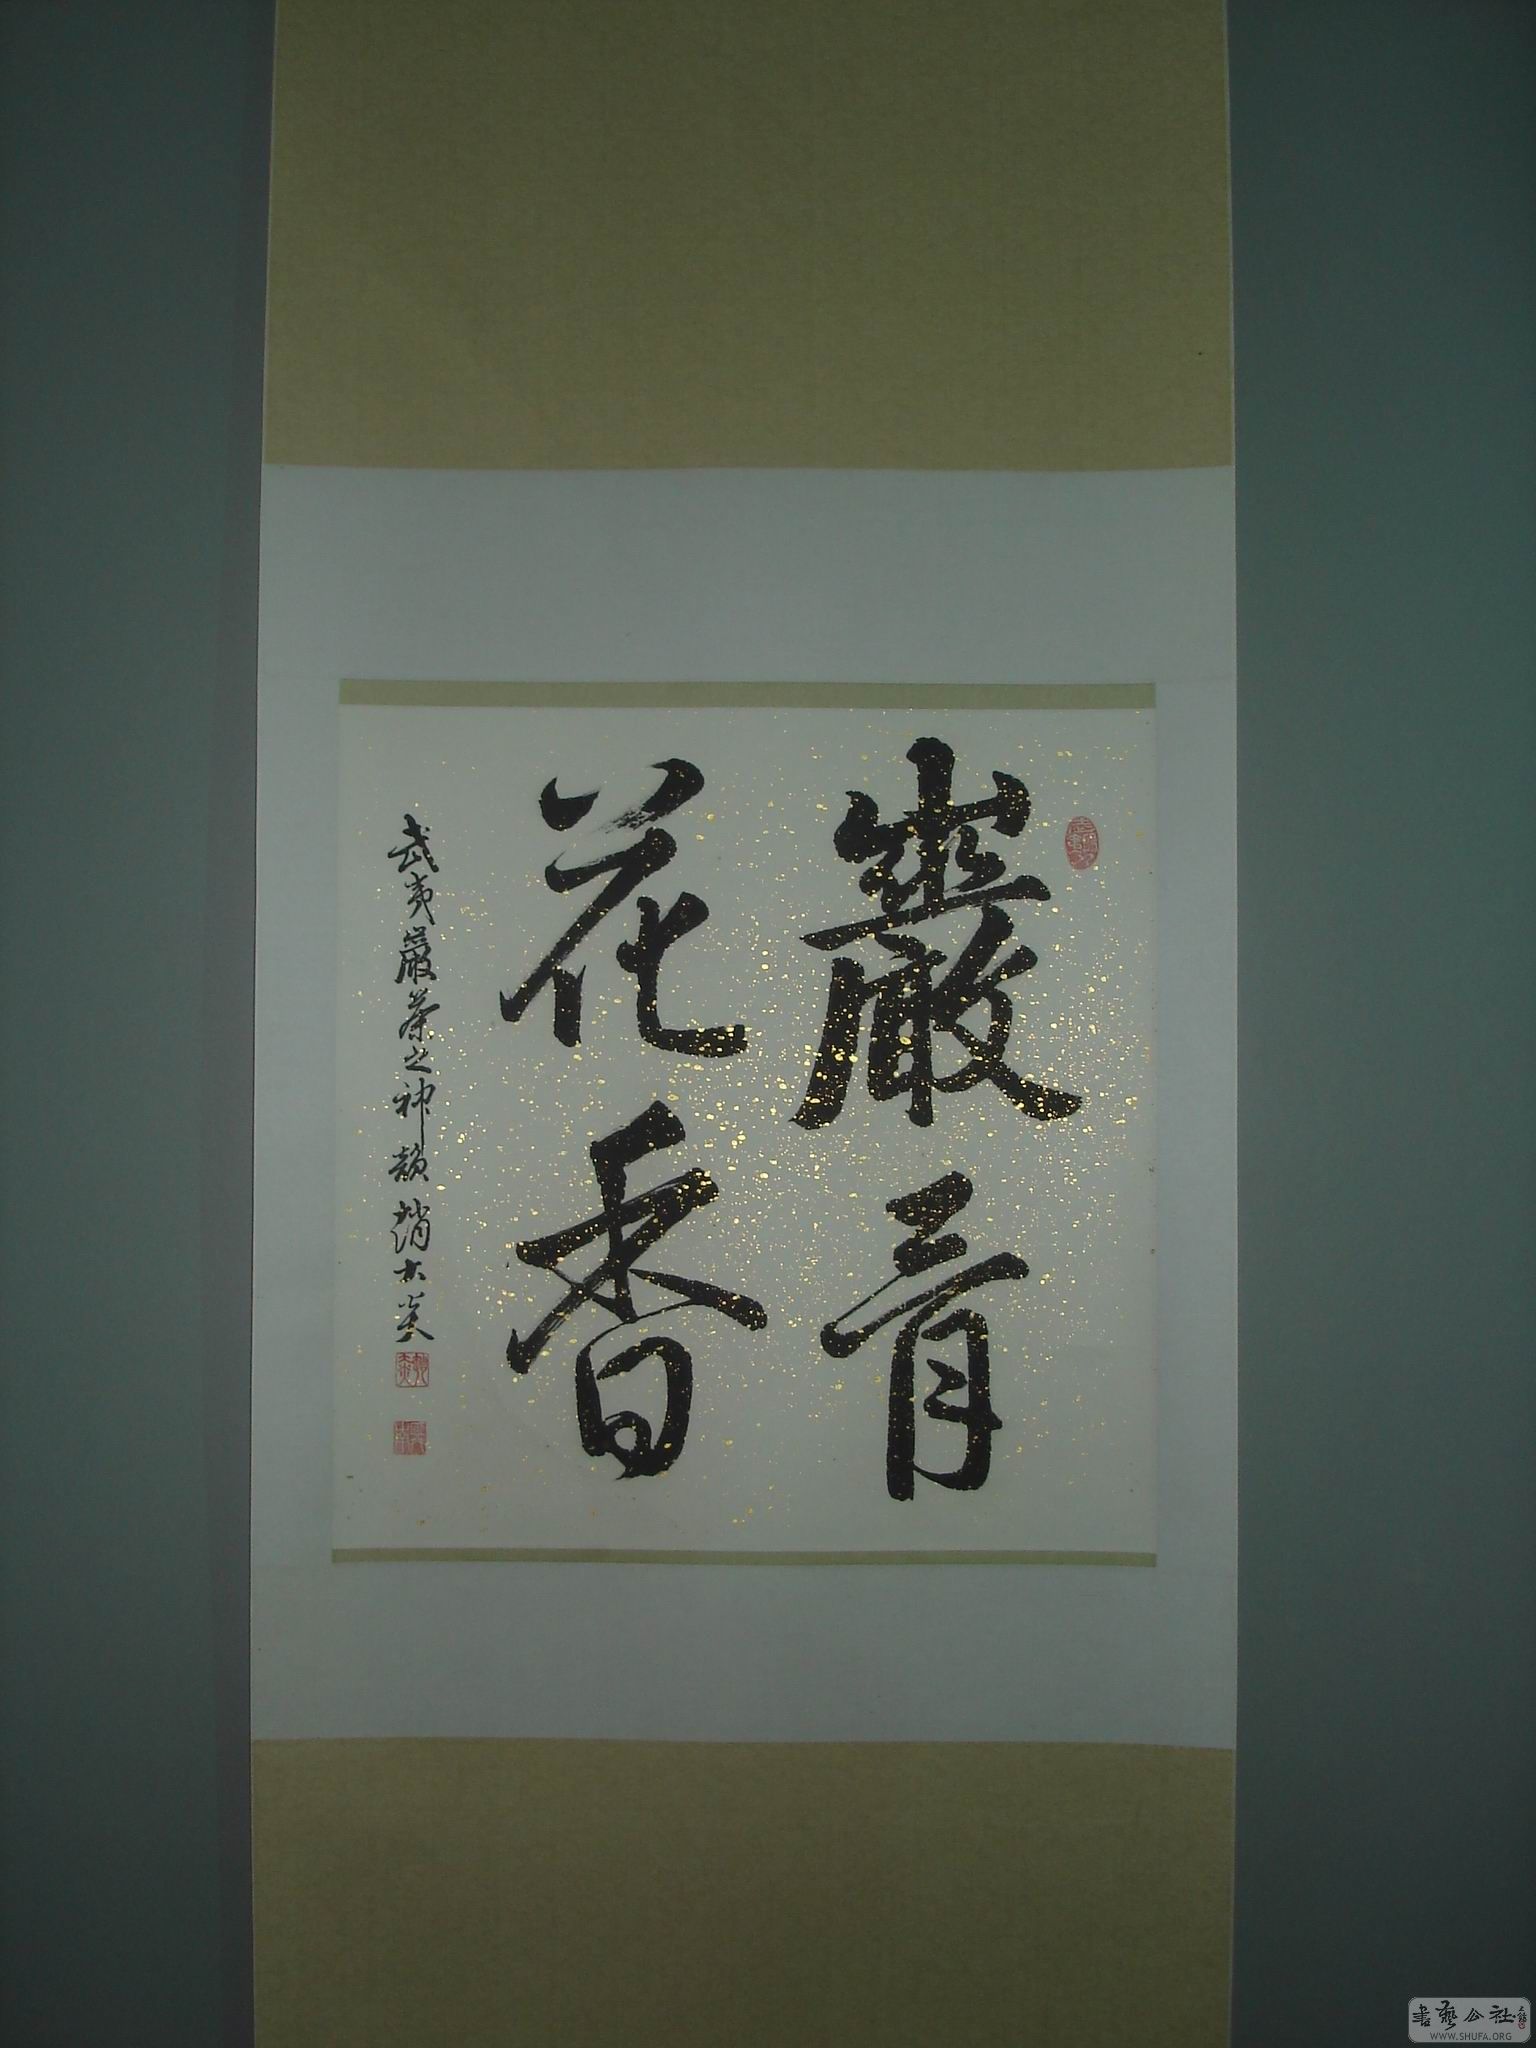 巖骨
花香
武夷巖茶之神韻 趙大炎
書藝公社
WWW.SHUFA.ORG